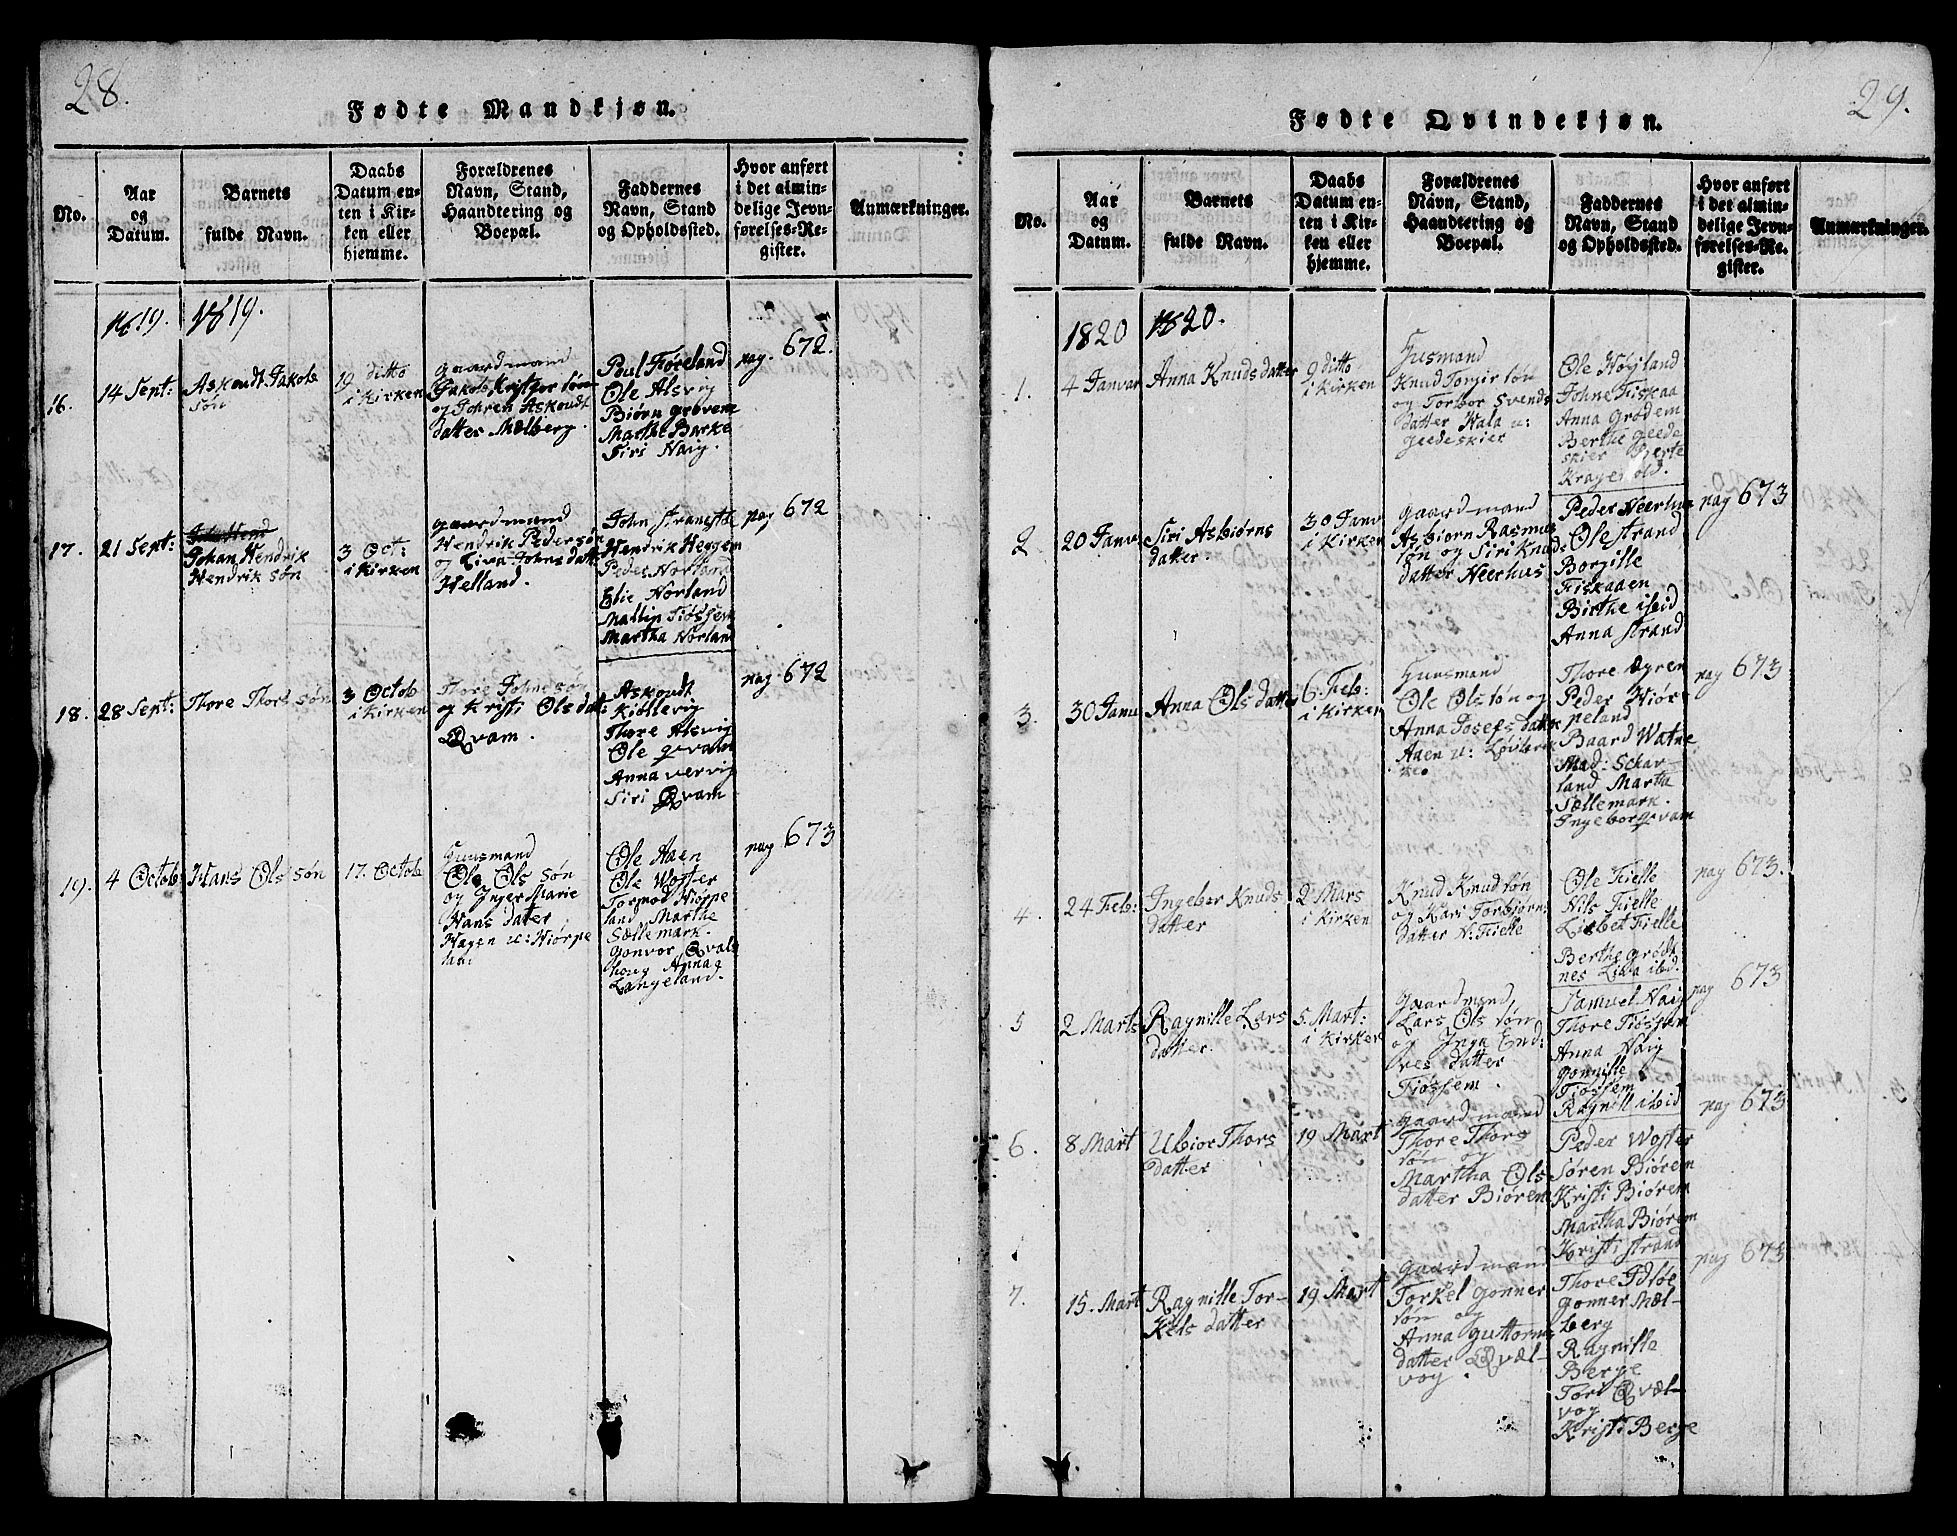 28.
Fødte Mandkjøn.
No.
Aar
og
Datum.
Barnets
fulde Navn.
Daabs
Datum en-
ten i Kir-
ken eller
hjemme.
Forældrenes
Navn, Stand,
Haandtering og
Boepæl.
Faddernes
Navn, Stand
og Opholdssted.
Hvor anført
i det almin-
delige Jevn-
førelses-Re-
gister.
Anmærkninger.
1819.
1819.
16.
14 Sept:
Askoudt Jakobs
søn
19 ditto
i Kirken
Gaardmand
Jakob Kristper søn
og Johren Askoudt
datter Mælberg.
Poul Føreland
Ole Alsvig
Biørn grovene
Marthe Barke
Siri Naig.
pag. 672.
17.
21 Sept:
Johan Hendrik
Hendrik søn
3 Oct:
i Kirken
gaardmand
Hendrik Pedersøn
og Johns datt:
Helland.
John
Hendrik Heggem
Peder Norland
Elie Norland
Mallin Fiøssem
Martha Norland
pag 672
18.
28 Sept:
Thore Thors søn
3 Octob
i Kirken
Thore Johnssøn
og Kristi Ols dat:
Qvam.
Askoudt
Kiøllevig
Thore Alsvig
Ole qvam
Anna vervig
Siri Qvam
pag 672
19.
4 Octob
Hans Ols søn
17. Octob
Huusmand
Ole Ols søn
og Inger Marie
Hans dater
Hagen u: Hiørpe
lan:
Ole Aaen
Ole Woster
Tormo Hiørpe
land, Marthe
Sællemark.
gonvor Qvals
houg Anna
Langeland.
pag 673
29.
Fødte Qvindekjøn.
No.
Aar
og
Datum.
Barnets
fulde Navn.
Daabs
Datum en-
ten i Kir-
ken eller
hjemme.
Forældrenes
Navn, Stand,
Haandtering og
Boepæl.
Faddernes
Navn, Stand
og Opholdssted.
Hvor anført
i det almin-
delige Jevn-
førelses-Re-
gister.
Anmærkninger.
1820
1820.
1.
4 Januar
Anna Knuds datter
9 ditto
i Kirken
Husmand
Knud Torgir søn
og Torbor Svends
datter Hala u:
geedeskier
Ole Høyland
Johne Fiskaa
Anna Grødem
Berthe geede
skier Berte
Kragehold.
2
20 Janv
Siri Asbiørns
datter
30 Janv
i Kirken
Gaardmand
Asbiørn Rasmus
søn og Siri Knuds
datter Neerhus
Peder Neerhus
Ole strand
Borgille
Fiskaaen
Birthe ibid
Anna strand
pag 673
3.
30 Janu
Anna Ols datter
6. Feb:
i Kirken
Huusmand
Ole Ols søn og
Anna Josefs datter
Aaen u:
Thore øgren
Peder Hiør-
peland
Baard Watne
Mad: Schar-
land Martha
Sællemark.
Ingeborg qvam
pag 673.
4.
24 Feb:
Ingebor Knuds
datter
2 Mars
i Kirken
Knud Knud søn
og Kari Torbiørn:
datter N: Fielle
Ole Fielle
Nils Fielle
Lisbet Fielle
Berthe grødt
nes Liva ibd.
pag 673.
5
2 Marts
Ragnille Lars
datter.
5. Mart:
i Kirken
Gaardmand
Lars Ols søn
og Inga End:
res datter
Fiøssem.
Samuel Naig
Thore Fiøssem
Anna Naig
gonnille
Fiøssem
Ragnill ibid
pag 673
6.
8 Mart
Ubior Thors
datter
19 Mart
Gaardmand
Thore Thors
søn og
Martha Ols
datter Biørem
Peder Woster
Søren Biørem
Kristi Biørem
Martha Biørem
Kristi strand
pag 673
7.
15. Mart
Ragnille Tor-
kels datter
19 Mart
Gaardmand
Torkel gonner
søn og
Anna guttorms
datter Qvæl-
vog.
Thore Idsøe
gonner Mæl-
berg
Ragnille
Berge
Tori Qvæl-
vog
Kristi Berge
pag 673